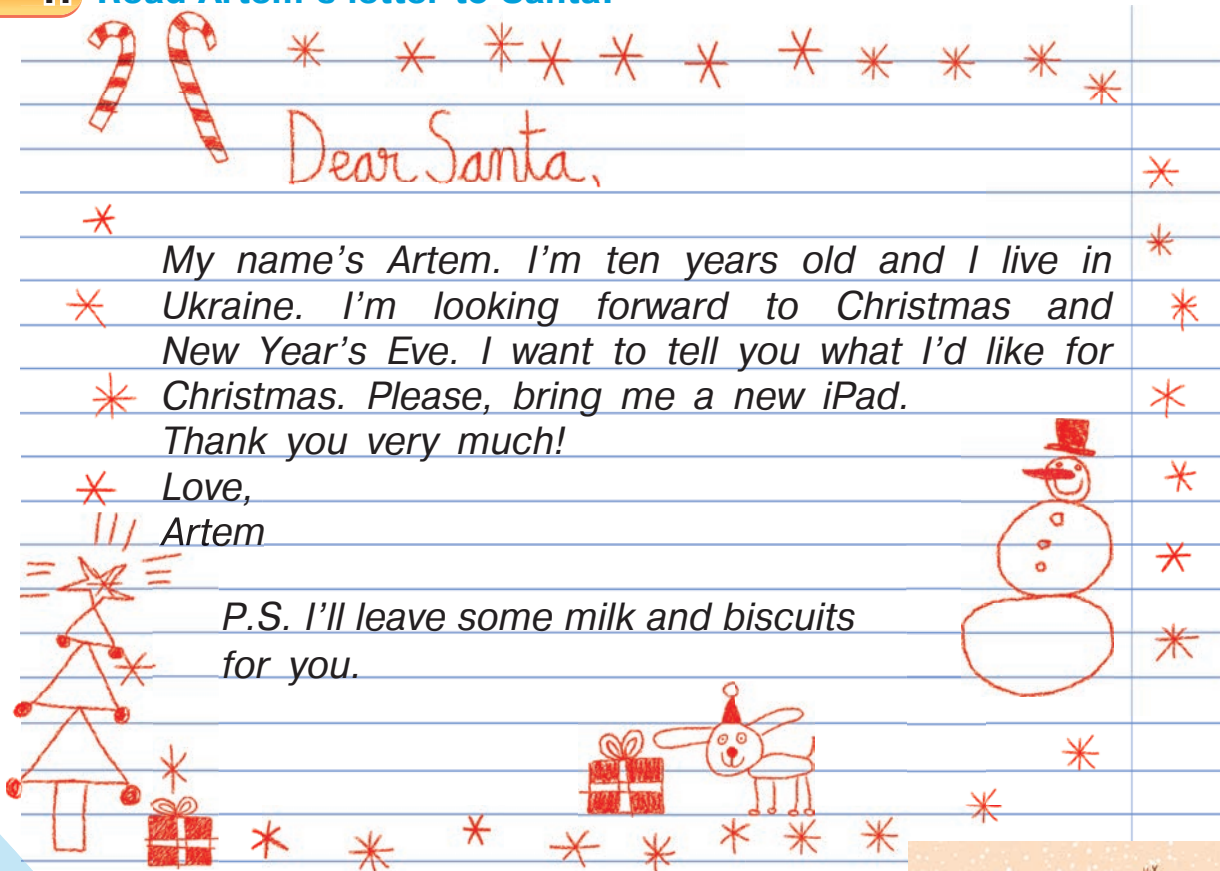 Read Artem's letter to Santa.
Dear Santa,
My name's Artem. I'm ten years old and I live in
Ukraine. I'm looking forward to Christmas and
New Year's Eve. I want to tell you what I'd like for
Christmas. Please, bring me a new iPad.
Thank you very much!
Love,
Artem
P.S. I'll leave some milk and biscuits
for you.